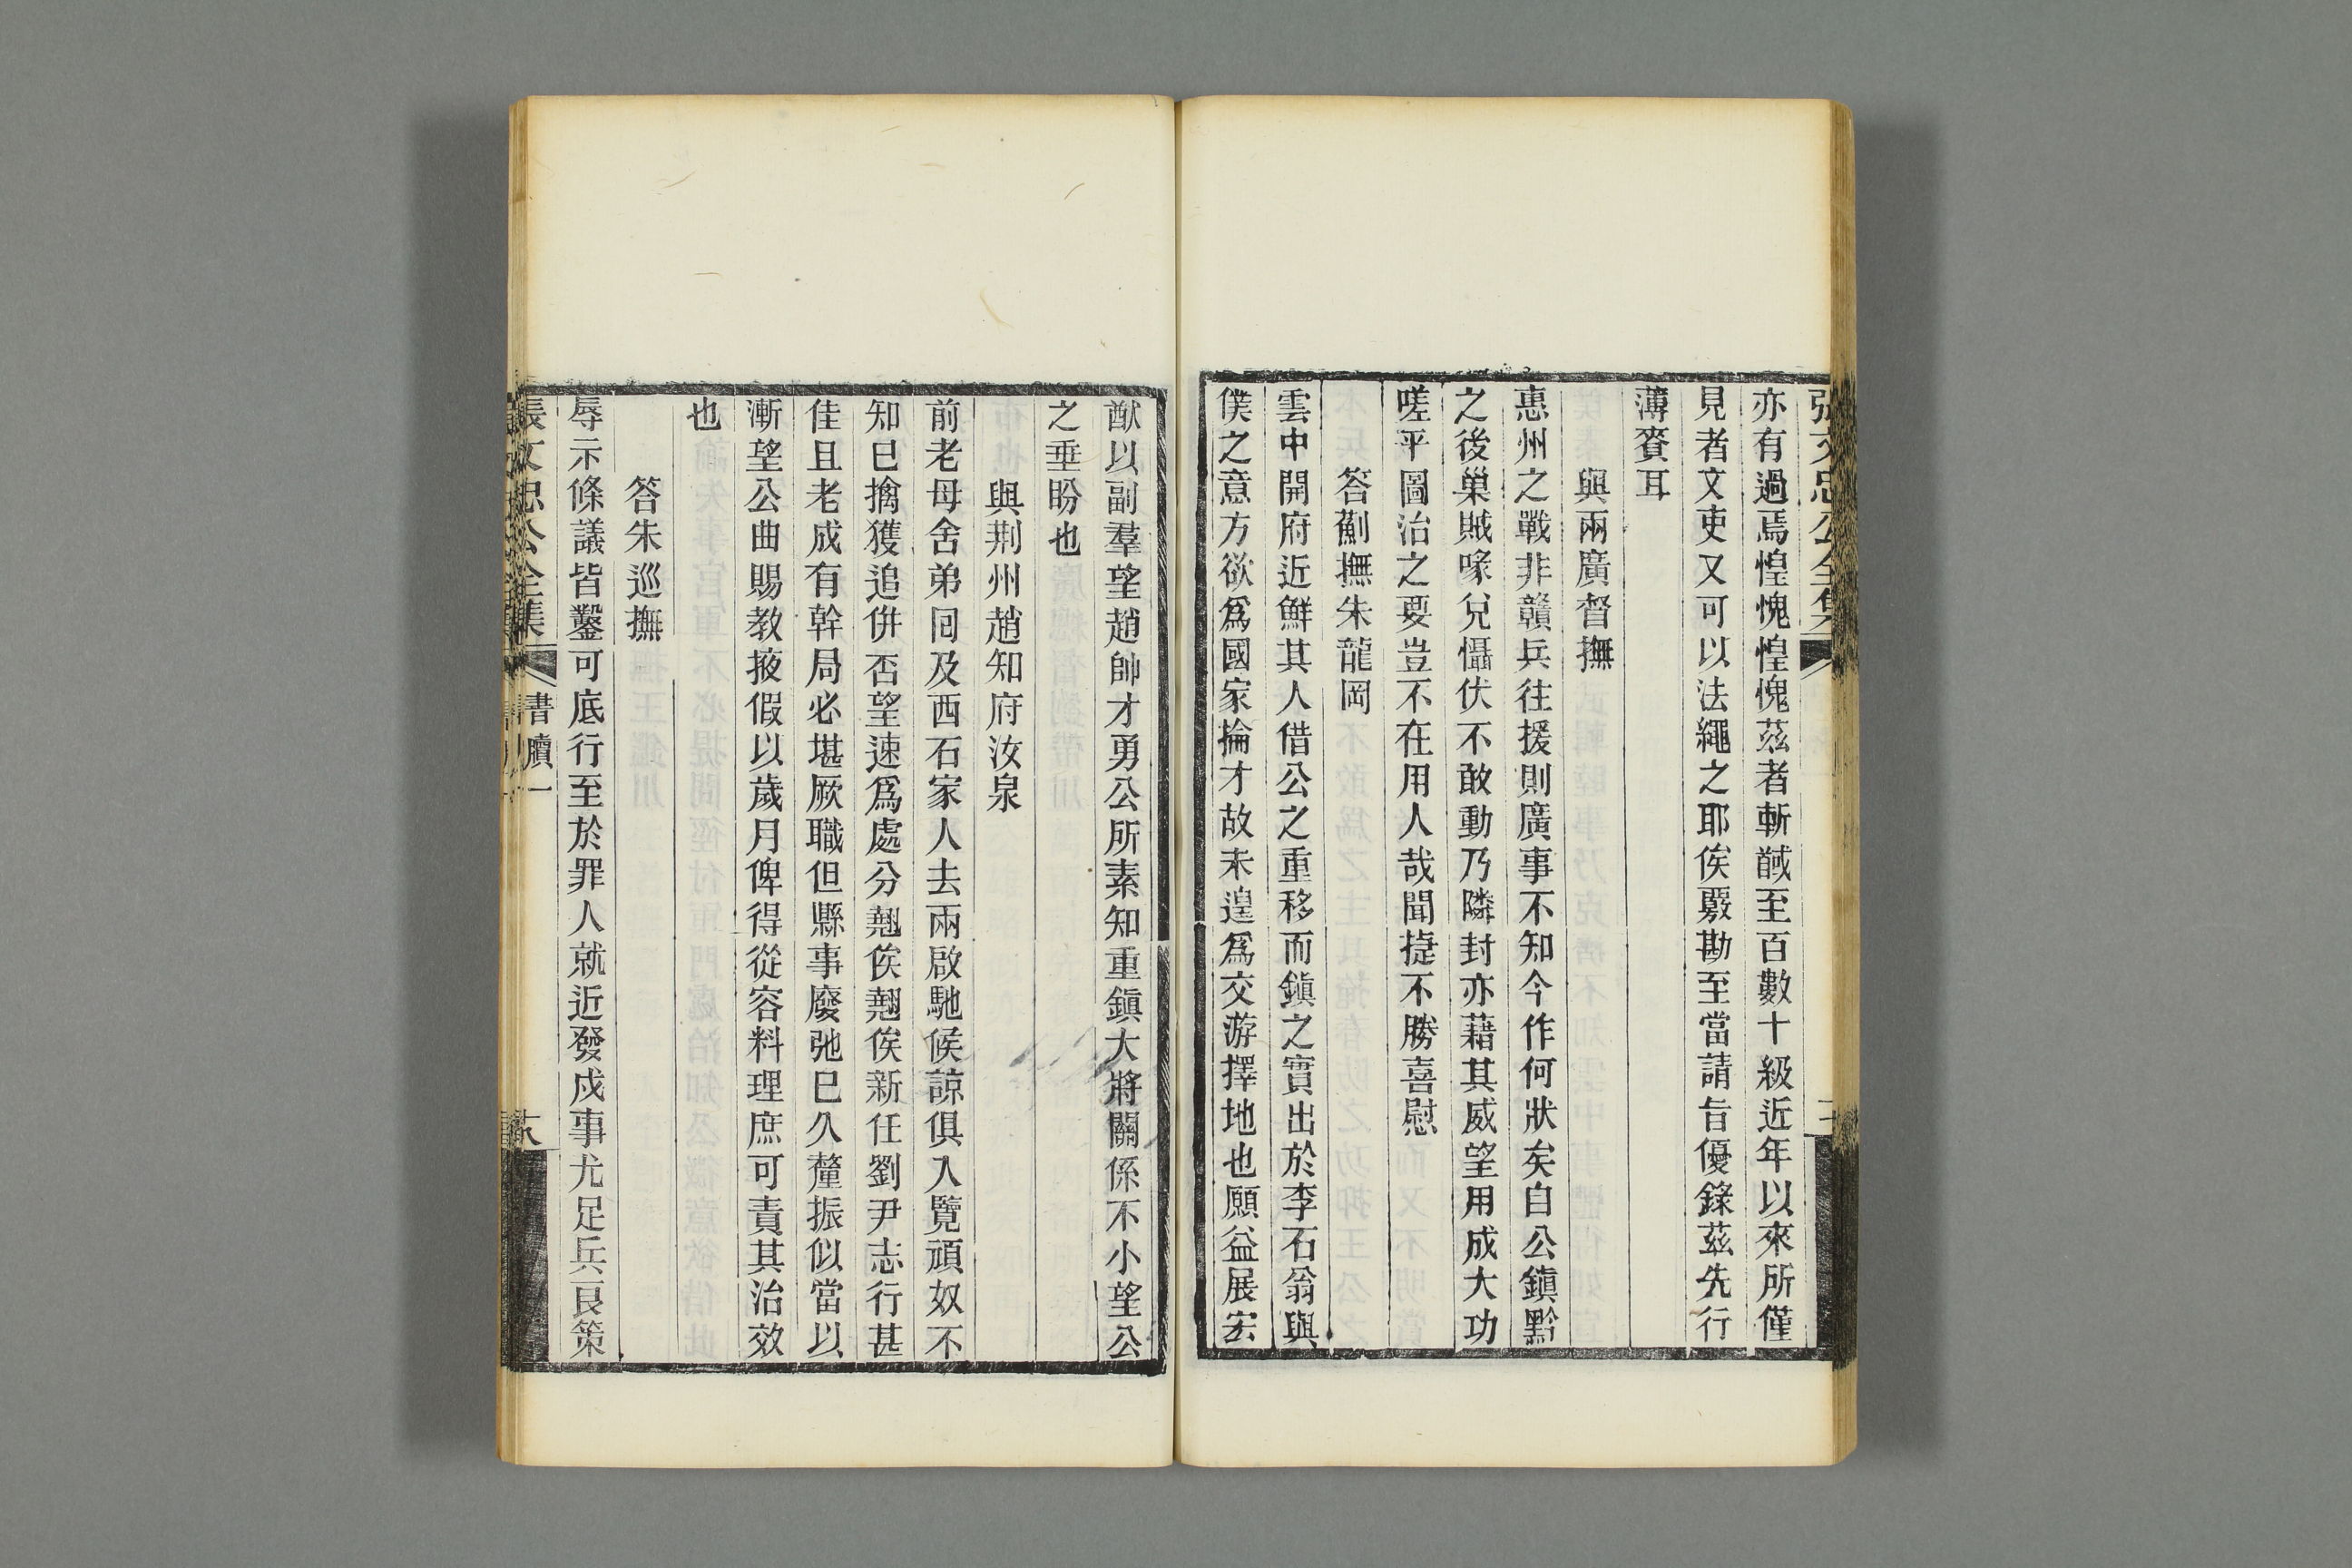 張文忠公全集
亦有過焉惶愧惶愧茲者斬馘至百數十級近年以來所僅
見者文吏又可以法繩之耶俟覈勘至當請旨優錄茲先行
薄賚耳
與兩廣督撫
惠州之戰非贛兵往援則廣事不知今作何狀矣自公鎮黔
之後巢賊喙兌懾伏不敢動乃隣封亦藉其威望用成大功
嗟乎圖治之要豈不在用人哉聞捷不勝喜慰
答薊撫朱龍岡
雲中開府近鮮其人借公之重移而鎮之實出於李石翁與
僕之意方欲爲國家掄才故未遑爲交游擇地也願益展宏
猷以副羣望趙帥才勇公所素知重鎮大將關係不小望公
之垂盼也
與荆州趙知府汝泉
前老母舍弟囘及西石家人去兩啟馳候諒俱入覽頑奴不
知已擒獲追併否望速爲處分翹俟翹俟新任劉尹志行甚
佳且老成有幹局必堪厥職但縣事廢弛已久釐振似當以
漸望公曲賜教掖假以歲月俾得從容料理庶可責其治效
也
答朱巡撫
辱示條議皆鑿可底行至於罪人就近發戍事尤足兵良策
張文忠公全集 書牘一